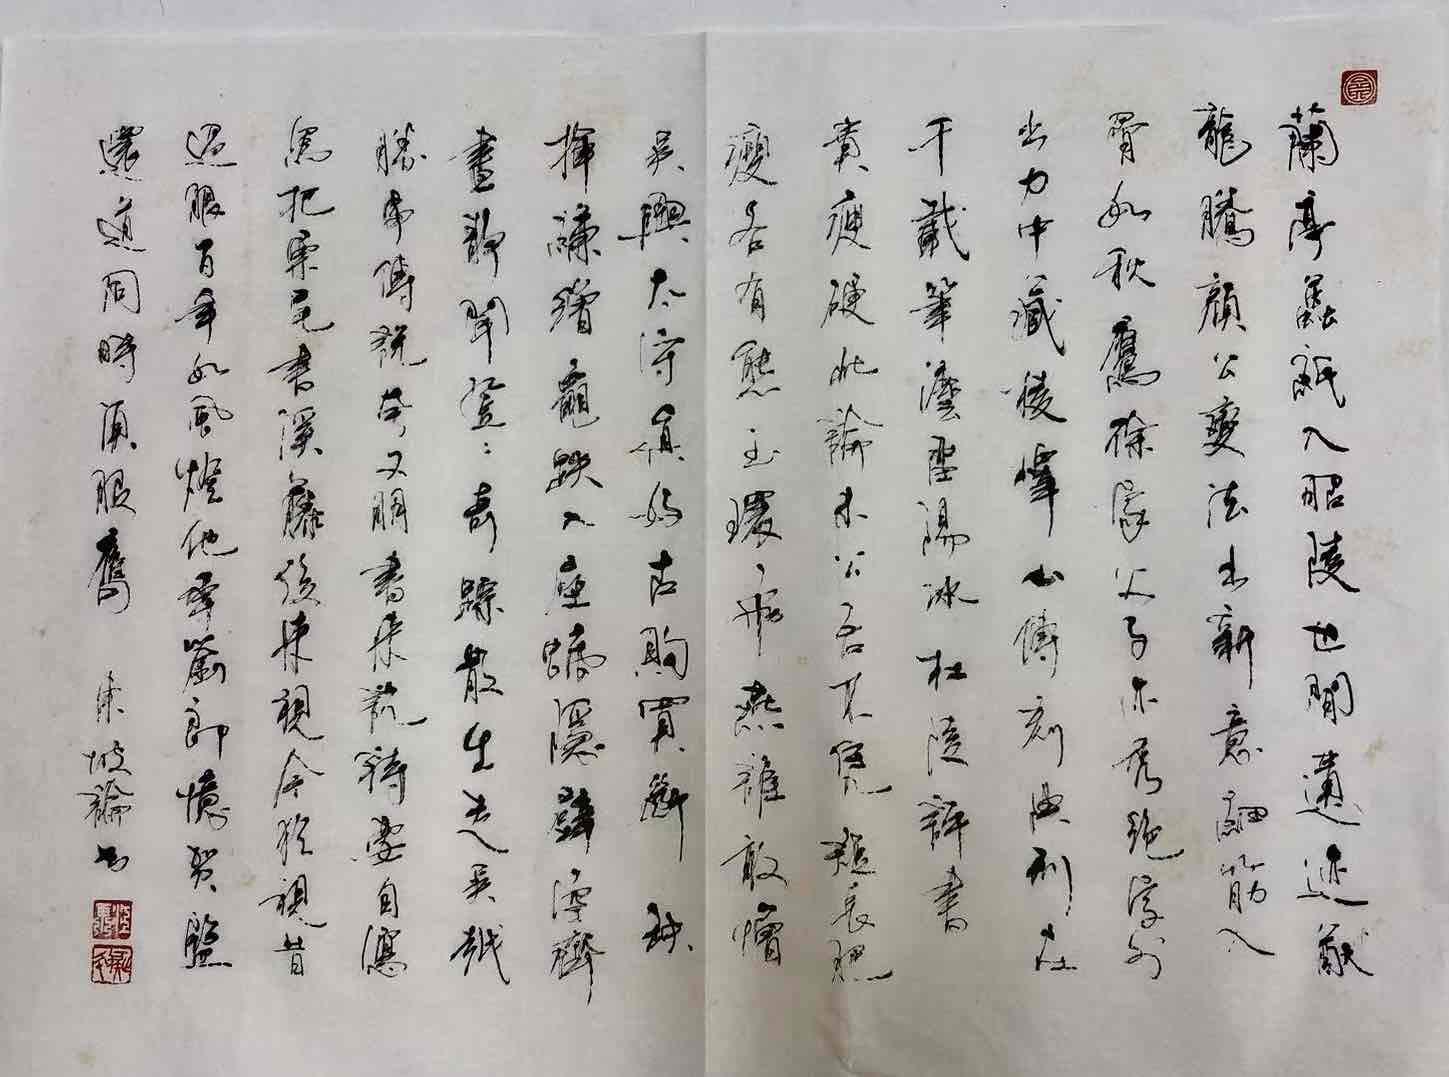 蘭亭繭紙入昭陵世間遺迹猶
龍騰顏公變法出新意細筋入
骨如秋鷹徐家父子亦秀絕字外
出力中藏稜嶧山傳刻典刑在
千載筆法留陽冰杜陵評書
貴瘦硬此論未公吾不憑短長肥
瘦各有態玉環飛燕誰敢憎
吳興太守真好古購買斷缺
揮縑繒龜趺入座螭隱壁空齋
晝靜聞登々奇蹤散出走吳越
勝事傳說夸友朋書來訖詩要自寫
為把栗尾書溪藤後來視今猶視昔
過眼百年如風燈他年劉郎憶賀監
還道同時須服膺 東坡論書